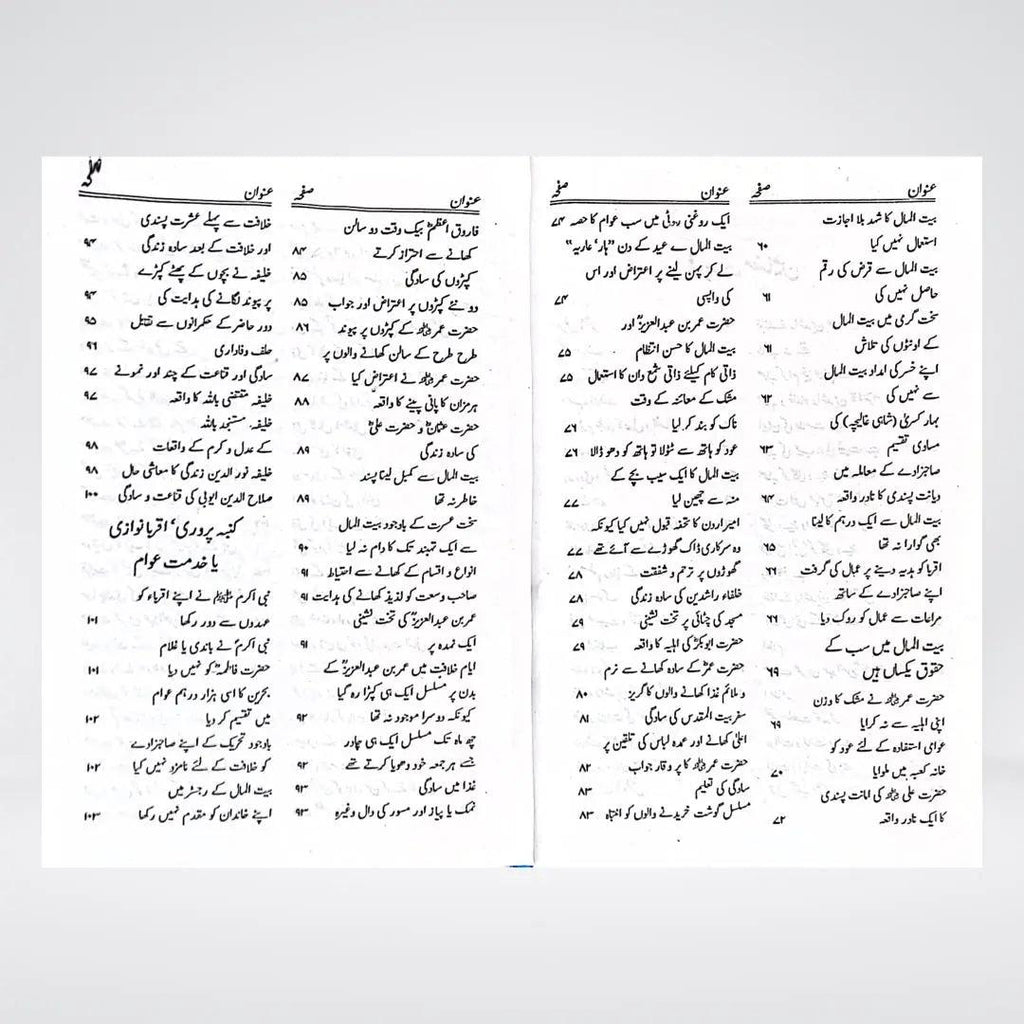 عنوان صفحہ
بیت المال کا شہد بلا اجازت
استعمال نہیں کیا ۶۰
بیت المال سے قرض کی رقم
حاصل نہیں کی ۶۱
سخت گری میں بیت المال
کے اونٹوں کی تلاش ۶۱
اپنے خسر کی امداد بیت المال
سے نہیں کی ۶۲
بہار کسریٰ (شاہی غالیچہ) کی
مساوی تقسیم ۶۳
صاجزادے کے معاملہ میں
دیانت پسندی کا نادر واقعہ ۶۴
بیت المال سے ایک درہم کا لینا
بھی گوارا نہ تھا ۶۵
اقربا کو ہدیہ دینے پر عمال کی گرفت ۶۶
اپنے صاجزادے کے ساتھ
مراعات سے عمال کو روک دیا ۶۶
بیت المال میں سب کے
حقوق یکساں ہیں ۶۹
حضرت عمرؓ نے مشک کا وزن
اپنی اہلیہ سے نہ کرایا ۶۹
عوامی استفادہ کے لئے عود کو
خانہ کعبہ میں ملوایا ۷۰
حضرت علیؓ کی امانت پسندی
کا ایک نادر واقعہ ۷۲
عنوان صفحہ
ایک روغنی روٹی میں سب عوام کا حصہ ۷۴
بیت المال سے عید کے دن “ہار’ عاریہ”
لے کر پہن لینے پر اعتراض اور اس
کی واپسی ۷۴
حضرت عمر بن عبدالعزیزؒ اور
بیت المال کا حسن انتظام ۷۵
ذاتی کام کیلئے ذاتی شمع دان کا استعمال ۷۵
مشک کے معائنہ کے وقت
ناک کو بند کر لیا ۷۶
عود کو ہاتھ سے ٹٹولا تو ہاتھ کو دھو ڈالا ۷۶
بیت المال کا ایک سیب بچے کے
منہ سے چھین لیا ۷۷
امیر اردن کا تحفہ قبول نہیں کیا کیونکہ
وہ سرکاری ڈاک گھوڑے سے آئے تھے ۷۷
گھوڑوں پر ترحم و شفقت ۷۸
خلفاء راشدین کی سادہ زندگی ۷۸
مسجد کی چٹائی پر تخت نشینی ۷۹
حضرت ابوبکرؓ کی اہلیہ کا واقعہ ۷۹
حضرت عمرؓ کے سادہ کھانے سے نرم
و ملائم غذا کھانے والوں کا گریز ۸۰
سفر بیت المقدس کی سادگی ۸۱
اعلیٰ کھانے اور عمدہ لباس کی تلقین پر
حضرت عمرؓ کا پر وقار جواب ۸۲
سادگی کی تعلیم ۸۳
مسلسل گوشت خریدنے والوں کو انتباہ ۸۳
عنوان صفحہ
فاروق اعظمؓ بیک وقت دو سالن
کھانے سے احتراز کرتے ۸۴
کپڑوں کی سادگی ۸۵
دو نئے کپڑوں پر اعتراض اور جواب ۸۵
حضرت عمرؓ کے کپڑوں پر پیوند ۸۶
طرح طرح کے سالن کھانے والوں پر
حضرت عمرؓ نے اعتراض کیا ۸۷
ہرمزان کا پانی پینے کا واقعہ ۸۸
حضرت عثمانؓ و حضرت علیؓ
کی سادہ زندگی ۸۹
بیت المال سے کمبل لینا پسند
خاطر نہ تھا ۸۹
سخت عسرت کے باوجود بیت المال
سے ایک تہبند تک کا دام نہ لیا ۹۰
انواع و اقسام کے کھانے سے احتیاط ۹۱
صاحب وسعت کو لذیذ کھانے کی ہدایت ۹۱
عمر بن عبدالعزیزؒ کی تخت نشینی
ایک نمدہ پر ۹۱
ایام خلافت میں عمر بن عبدالعزیزؒ کے
بدن پر مسلسل ایک ہی کپڑا رہ گیا
کیونکہ دوسرا موجود نہ تھا ۹۲
چھ ماہ تک مسلسل ایک ہی چادر
جسے ہر جمعہ خود دھویا کرتے تھے ۹۲
غذا میں سادگی ۹۳
نمک یا پیاز اور مسور کی دال وغیرہ ۹۳
عنوان صفحہ
خلافت سے پہلے عشرت پسندی
اور خلافت کے بعد سادہ زندگی ۹۴
خلیفہ نے بچوں کے پھٹے کپڑے
پر پیوند لگانے کی ہدایت کی ۹۴
دور حاضر کے حکمرانوں سے تقابل ۹۵
حلف وفاداری ۹۶
سادگی اور قناعت کے چند اور نمونے ۹۷
خلیفہ مقتفی باللہ کا واقعہ ۹۷
خلیفہ مستنجد باللہ
کے عدل و کرم کے واقعات ۹۸
خلیفہ نور الدین زندگی کا معاشی حال ۹۸
صلاح الدین ایوبی کی قناعت و سادگی ۱۰۰
کنبہ پروری’ اقربا نوازی
یا خدمت عوام
نبی اکرم ﷺ نے اپنے اقرباء کو
عہدوں سے دور رکھا ۱۰۱
نبی اکرمؐ نے باندی یا غلام
حضرت فاطمہؓ کو نہیں دیا ۱۰۱
بحرین کا اسی ہزار درہم عوام
میں تقسیم کر دیا ۱۰۲
باوجود تحریک کے اپنے صاجزادے
کو خلافت کے لئے نامزد نہیں کیا ۱۰۲
بیت المال کے رجسٹر میں
اپنے خاندان کو مقدم نہیں رکھا ۱۰۳